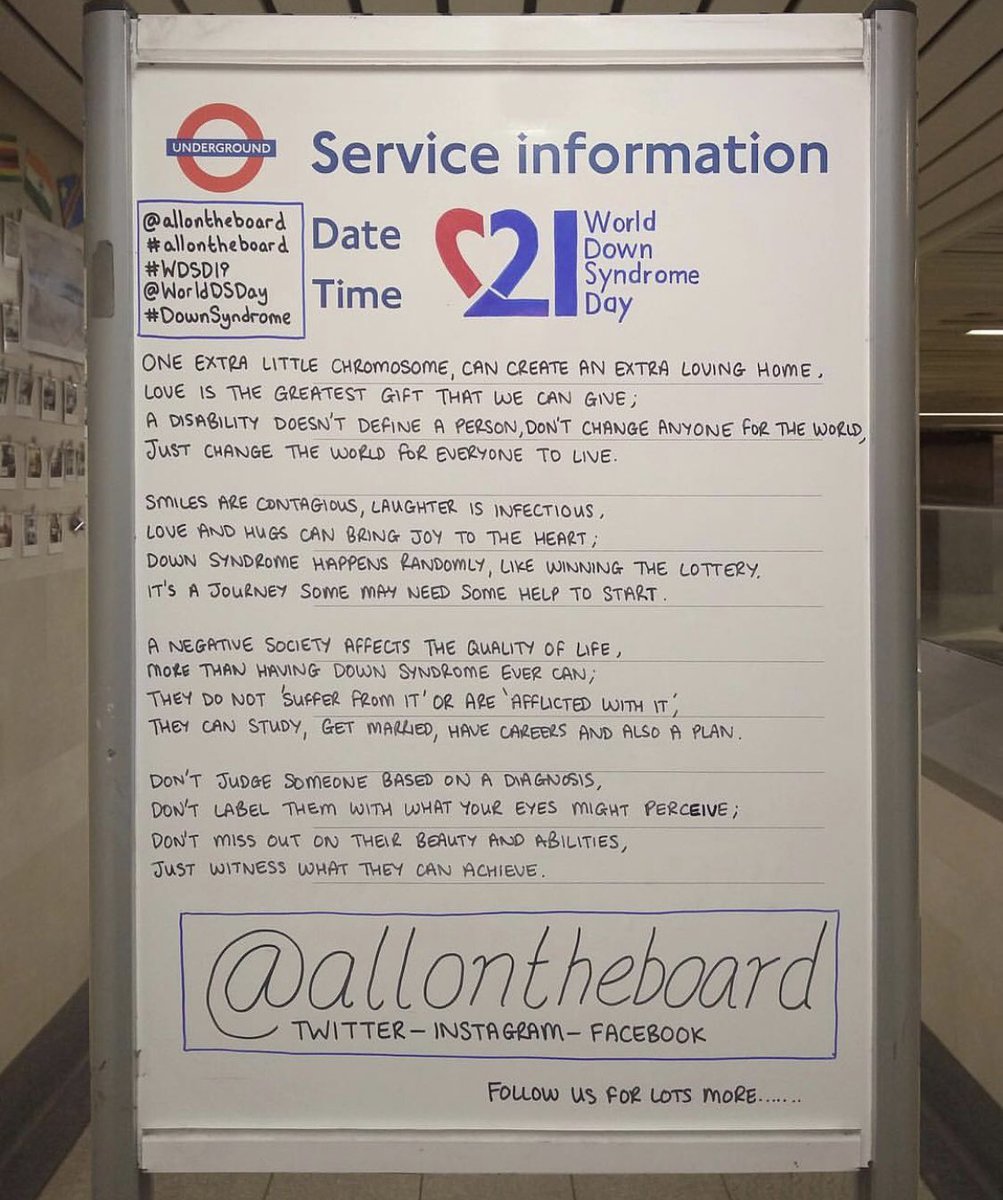 UNDERGROUND
Service information
@allontheboard
#allontheboard
#WDSD19
@WorldDSDay
#DownSyndrome
Date
Time
21
World
Down
Syndrome
Day
ONE EXTRA LITTLE CHROMOSOME, CAN CREATE AN EXTRA LOVING HOME.
LOVE IS THE GREATEST GIFT THAT WE CAN GIVE;
A DISABILITY DOESN'T DEFINE A PERSON, DON'T CHANGE ANYONE FOR THE WORLD,
JUST CHANGE THE WORLD FOR EVERYONE TO LIVE.
SMILES ARE CONTAGIOUS, LAUGHTER IS INFECTIOUS,
LOVE AND HUGS CAN BRING JOY TO THE HEART;
DOWN SYNDROME HAPPENS RANDOMLY, LIKE WINNING THE LOTTERY.
IT'S A JOURNEY SOME MAY NEED SOME HELP TO START.
A NEGATIVE SOCIETY AFFECTS THE QUALITY OF LIFE,
MORE THAN HAVING DOWN SYNDROME EVER CAN;
THEY DO NOT 'SUFFER FROM IT' OR ARE 'AFFLICTED WITH IT',
THEY CAN STUDY, GET MARRIED, HAVE CAREERS AND ALSO A PLAN.
DON'T JUDGE SOMEONE BASED ON A DIAGNOSIS,
DON'T LABEL THEM WITH WHAT YOUR EYES MIGHT PERCEIVE;
DON'T MISS OUT ON THEIR BEAUTY AND ABILITIES,
JUST WITNESS WHAT THEY CAN ACHIEVE.
@allontheboard
TWITTER - INSTAGRAM - FACEBOOK
FOLLOW US FOR LOTS MORE.......